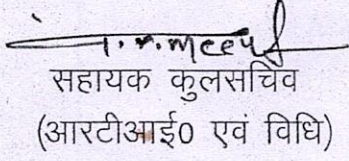 सहायक कुलसचिव
(आरटीआई0 एवं विधि)